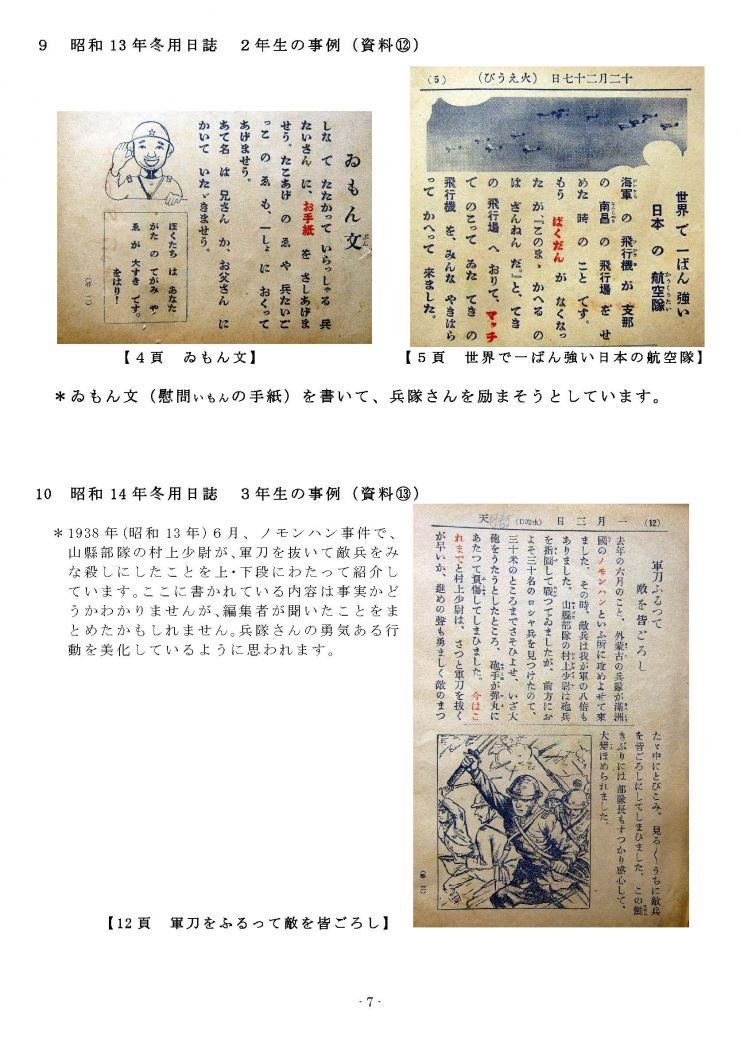 ９　昭和13年冬用日誌　２年生の事例（資料⑫）
ゐもん文
しな で たたかつて いらっしゃる 兵
たいさん に、お手紙 を さしあげま
せう。たこあげ の ゑ や 兵たいご
つこ の ゑ も、一しょ に おくつて
あげませう。
あて名 は 兄さん か、お父さん に
かいて いたゞきませう。
ぼくたち は あなた
がた の てがみ や、
ゑ が 大すき です。
をはり！
【４頁　ゐもん文】
十二月二十七日（火えうび）（5）
世界 で 一ばん 強い
日本 の 航空隊
海軍 の 飛行機 が 支那
の 南昌 の 飛行場 を せ
めた 時 の こと です。
もう ばくだん が なくなつ
た が、『このまゝ かへる の
は ざんねん だ。』と、てき
の 飛行場 へ おりて、マッチ
で のこつて ゐた てき の
飛行機 を、みんな やきはら
つて かへつて 来ました。
【５頁　世界で一ばん強い日本の航空隊】
＊ゐもん文（慰問いもんの手紙）を書いて、兵隊さんを励まそうとしています。
10　昭和14年冬用日誌　３年生の事例（資料⑬）
＊1938年(昭和13年)６月、ノモンハン事件で、
山縣部隊の村上少尉が､軍刀を抜いて敵兵をみ
な殺しにしたことを上･下段にわたって紹介し
ています｡ここに書かれている内容は事実かど
うかわかりませんが､編集者が聞いたことをま
とめたかもしれません｡兵隊さんの勇気ある行
動を美化しているように思われます。
一月三日（水曜日）天（12）
軍刀ふるつて
敵を皆ごろし
去年の六月のこと、外蒙古の兵隊が滿洲
國のノモンハンといふ所に攻めよせて來
ました。その時、敵兵は我が軍の八倍も
ありました。山縣部隊の村上少尉は砲兵
を指圖して戰つてゐましたが、前方にお
よそ三十名のロシヤ兵を見つけたので、
三十米のところまでさそひよせ、いざ大
砲をうたうとしたところ、砲手が弾丸に
あたつて負傷してしまひました。今はこ
れまでと村上少尉は、さつと軍刀を拔く
が早いか、進めの聲も勇ましく敵のまつ
たゞ中にとびこみ、見る〱うちに敵兵
を皆ごろしにしてしまひました。この働
きぶりには部隊長もすつかり感心して、
大變ほめられました。
【12頁　軍刀をふるって敵を皆ごろし】
- 7 -